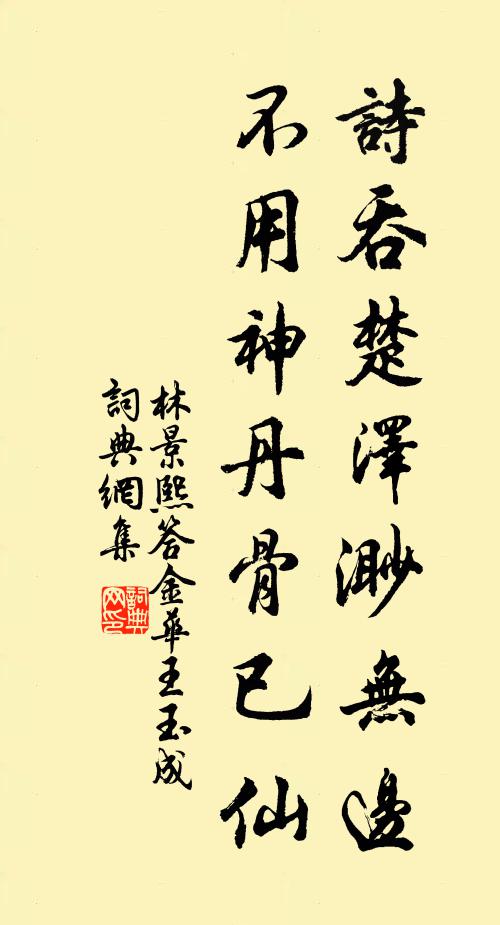 詩吞楚澤渺無邊
不用神丹骨已仙
林景熙答金華王玉成
詞典網集
詞典网印